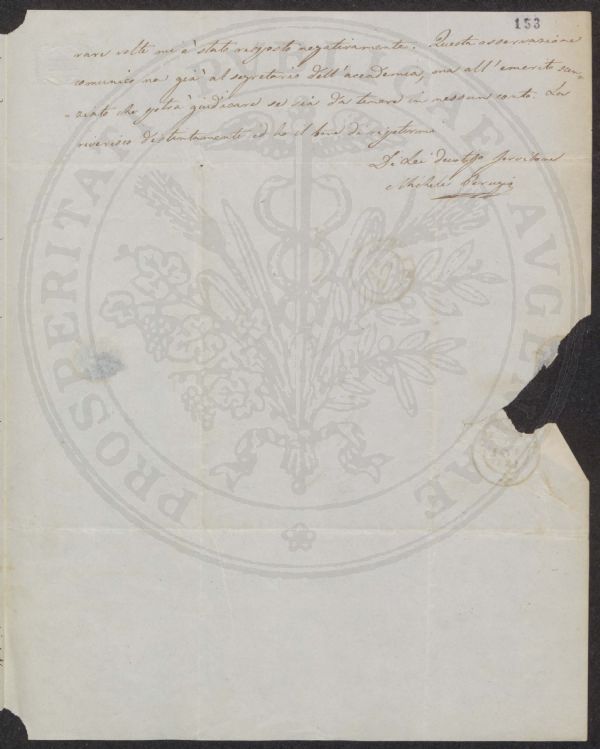 153
rare volte mi è stato risposto negativamente. Questa osservazione
comunico non già al segretario dell'accademia, ma all'emerito scien-
-ziato che potrà giudicare se sia da tenere in nessun conto. La
riverisco distintamente ed ho il bene di ripetermi
Di Lei devotissº servitore
Michele Perugia
PROSPERITATI PUBLICAE AVGENDAE